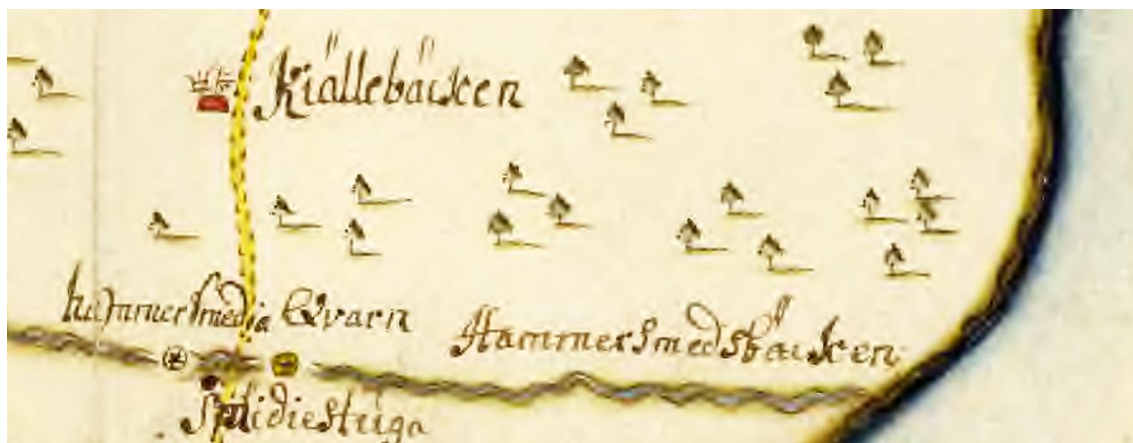 Kiällebäcken
hammersmedja Qvarn
Hammersmedsbäcken
Smidiestuga